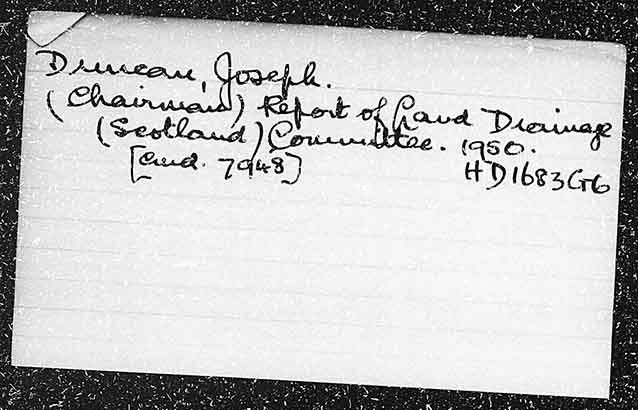 Duncan, Joseph.
(Chairman) Report of Land Drainage
(Scotland) Committee. 1950.
[Cmd. 7948] HD1683G6